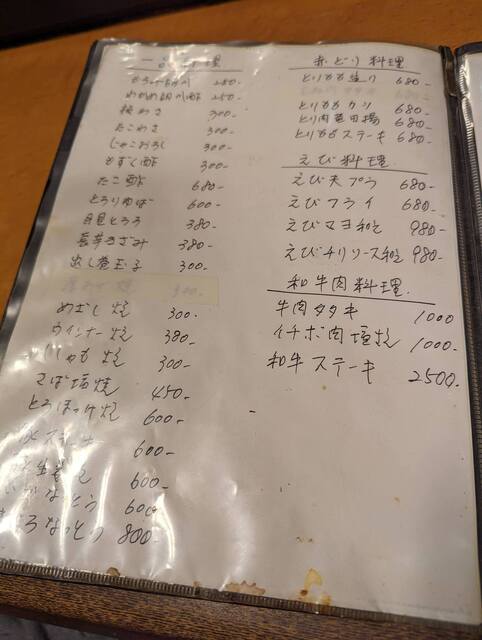 一品料理
250-
わかめ胡瓜酢 250-
板わさ 300-
たこわさ 300-
じゃこおろし 300-
もずく酢 300-
たこ酢 680-
とろりゆば 600-
月見とろろ 380-
長芋きざみ 380-
出し巻玉子 300-
めざし焼 300-
ウインナー焼 380-
ししゃも焼 300-
さば塩焼 450-
とろほっけ焼 600-
600-
600-
なっとう 600-
なっとう 800-
赤どり料理
とりもも塩やき 680-
とりももカツ 680-
とり肉竜田揚 680-
とりももステーキ 680-
えび料理
えび天プラ 680-
えびフライ 680-
えびマヨ和え 980-
えびチリソース和え 980-
和牛肉料理
牛肉タタキ 1000
イチボ肉塩焼 1000-
和牛ステーキ 2500-